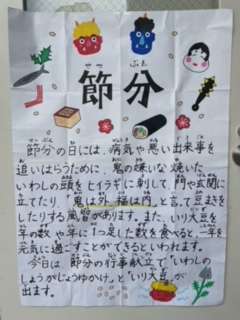 節分
せつ ぶん
節分の日には、病気や悪い出来事を
追いはらうために、鬼の嫌いな焼いた
いわしの頭をヒイラギに刺して、門や玄関に
立てたり、「鬼は外、福は内」と言って豆まき
したりする風習があります。また、いり大豆を
年の数や年に1つ足した数を食べると、一年を
元気に過ごすことができるといわれます。
今日は、節分の行事献立で「いわしの
しょうがじょうゆかけ」と「いり大豆」が
出ます。